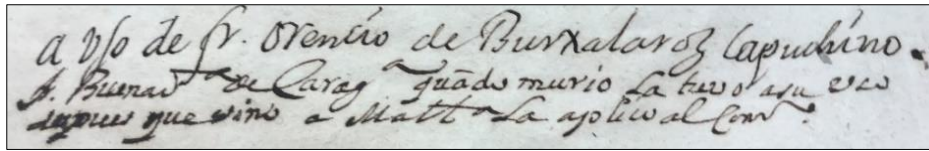 a vso de fr. Orencio de Burxalaroz Capuchino.
fr. Buenavᵃ de Caragᵃ quãdo murio la tuvo a su vso
despues que vino a Mattᵃ La aplico al Convᵗᵒ.